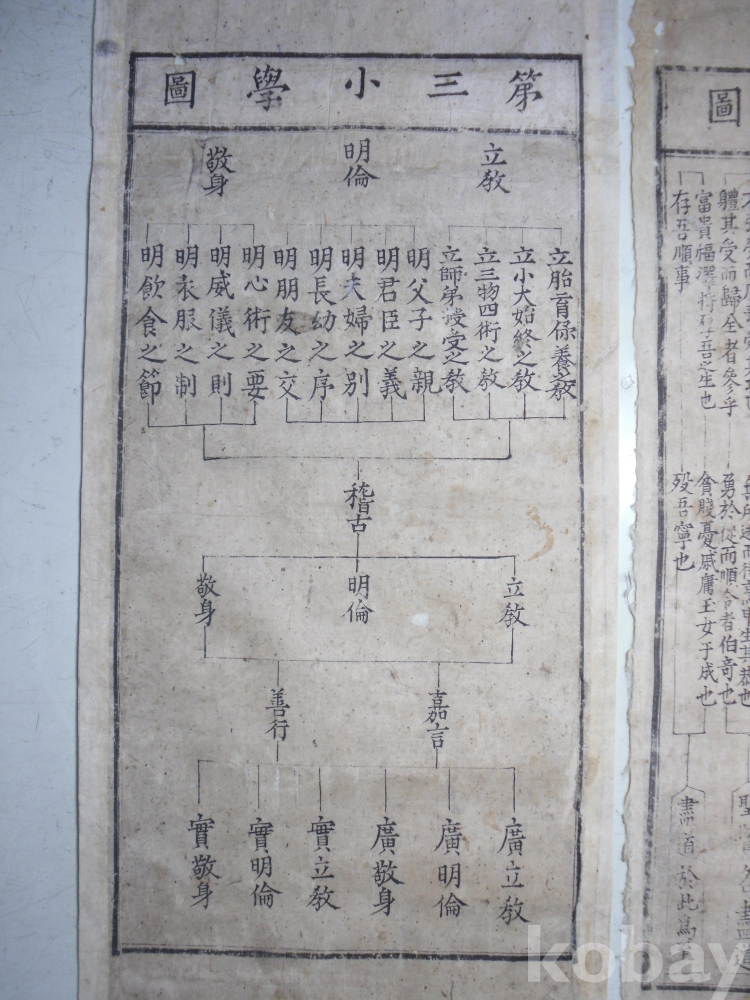 第三小學圖
立敎
明倫
敬身
立胎育保養之敎
立小大始終之敎
立三物四術之敎
立師弟授受之敎
明父子之親
明君臣之義
明夫婦之別
明長幼之序
明朋友之交
明心術之要
明威儀之則
明衣服之制
明飮食之節
稽古
立敎
明倫
敬身
嘉言
善行
廣立敎
廣明倫
廣敬身
實立敎
實明倫
實敬身
圖
體其受而歸全者參乎
勇於從而順令者伯奇也
富貴福澤將厚吾之生也
貧賤憂戚庸玉女于成也
存吾順事
歿吾寧也
盡道於此爲
kobay